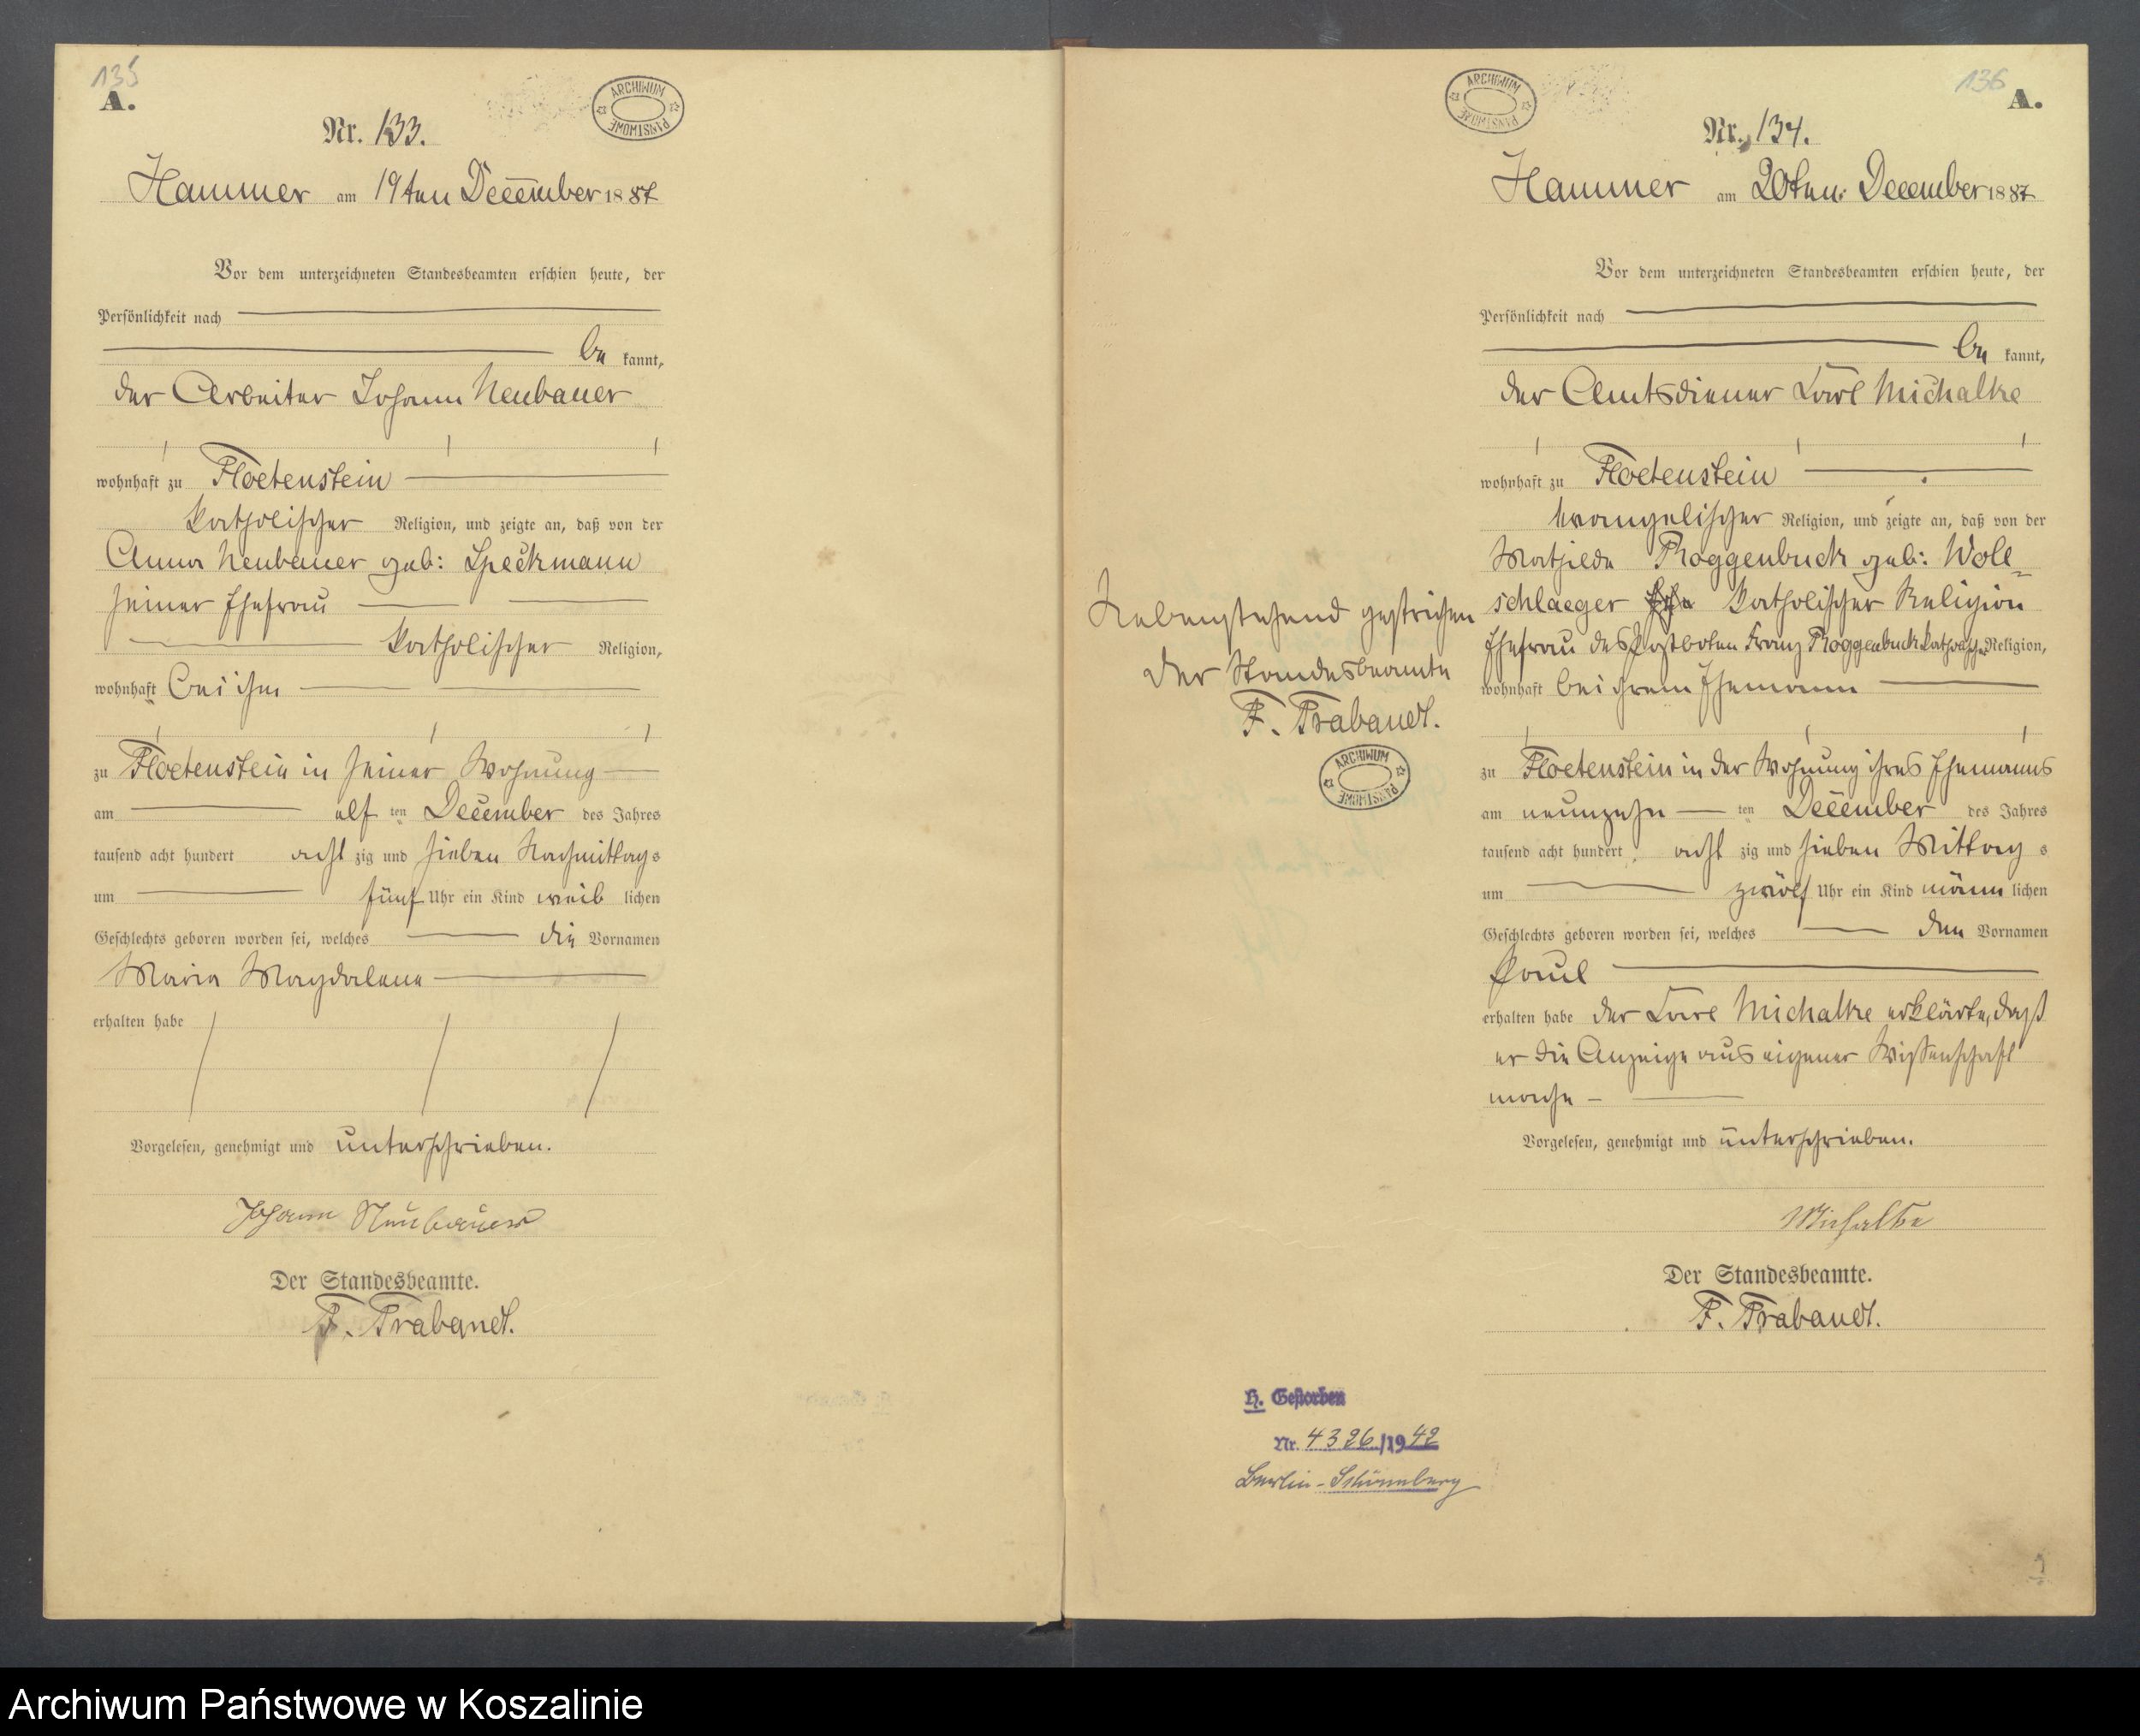 135
A.
ARCHIWUM PAŃSTWOWE
Nr. 133.
Hammer am 19ten December 1887
Vor dem unterzeichneten Standesbeamten erschien heute, der
Persönlichkeit nach
be kannt,
der Arbeiter Johann Neubauer
wohnhaft zu Floetenstein
katholischer Religion, und zeigte an, daß von der
Anna Neubauer geb: Speckmann
seiner Ehefrau
katholischer Religion,
wohnhaft bei ihm
zu Floetenstein in seiner Wohnung
am elf ten December des Jahres
tausend acht hundert acht zig und sieben Nachmittags
um fünf Uhr ein Kind weib lichen
Geschlechts geboren worden sei, welches die Vornamen
Maria Magdalena
erhalten habe
Vorgelesen, genehmigt und unterschrieben.
Johann Neubauer
Der Standesbeamte.
F. Trabandt.
136
A.
ARCHIWUM PAŃSTWOWE
Nr. 134.
Hammer am 20ten December 1887
Vor dem unterzeichneten Standesbeamten erschien heute, der
Persönlichkeit nach
be kannt,
der Amtsdiener Karl Michalke
wohnhaft zu Floetenstein
evangelischer Religion, und zeigte an, daß von der
Mathilde Roggenbuck geb: Woll=
schlaeger katholischer Religion
Ehefrau des Postboten Franz Roggenbuck katholischer Religion,
wohnhaft bei ihrem Ehemann
zu Floetenstein in der Wohnung ihres Ehemanns
am neunzehn ten December des Jahres
tausend acht hundert acht zig und sieben Mittag s
um zwölf Uhr ein Kind männ lichen
Geschlechts geboren worden sei, welches den Vornamen
Paul
erhalten habe der Karl Michalke erklärte, daß
er die Anzeige aus eigener Wissenschaft
mache –
Vorgelesen, genehmigt und unterschrieben.
Michalke
Der Standesbeamte.
F. Trabandt.
Nebenstehend gestrichen
Der Standesbeamte
F. Trabandt.
ARCHIWUM PAŃSTWOWE
H. Gestorben
Nr. 4326/1942
Berlin-Schöneberg
Archiwum Państwowe w Koszalinie